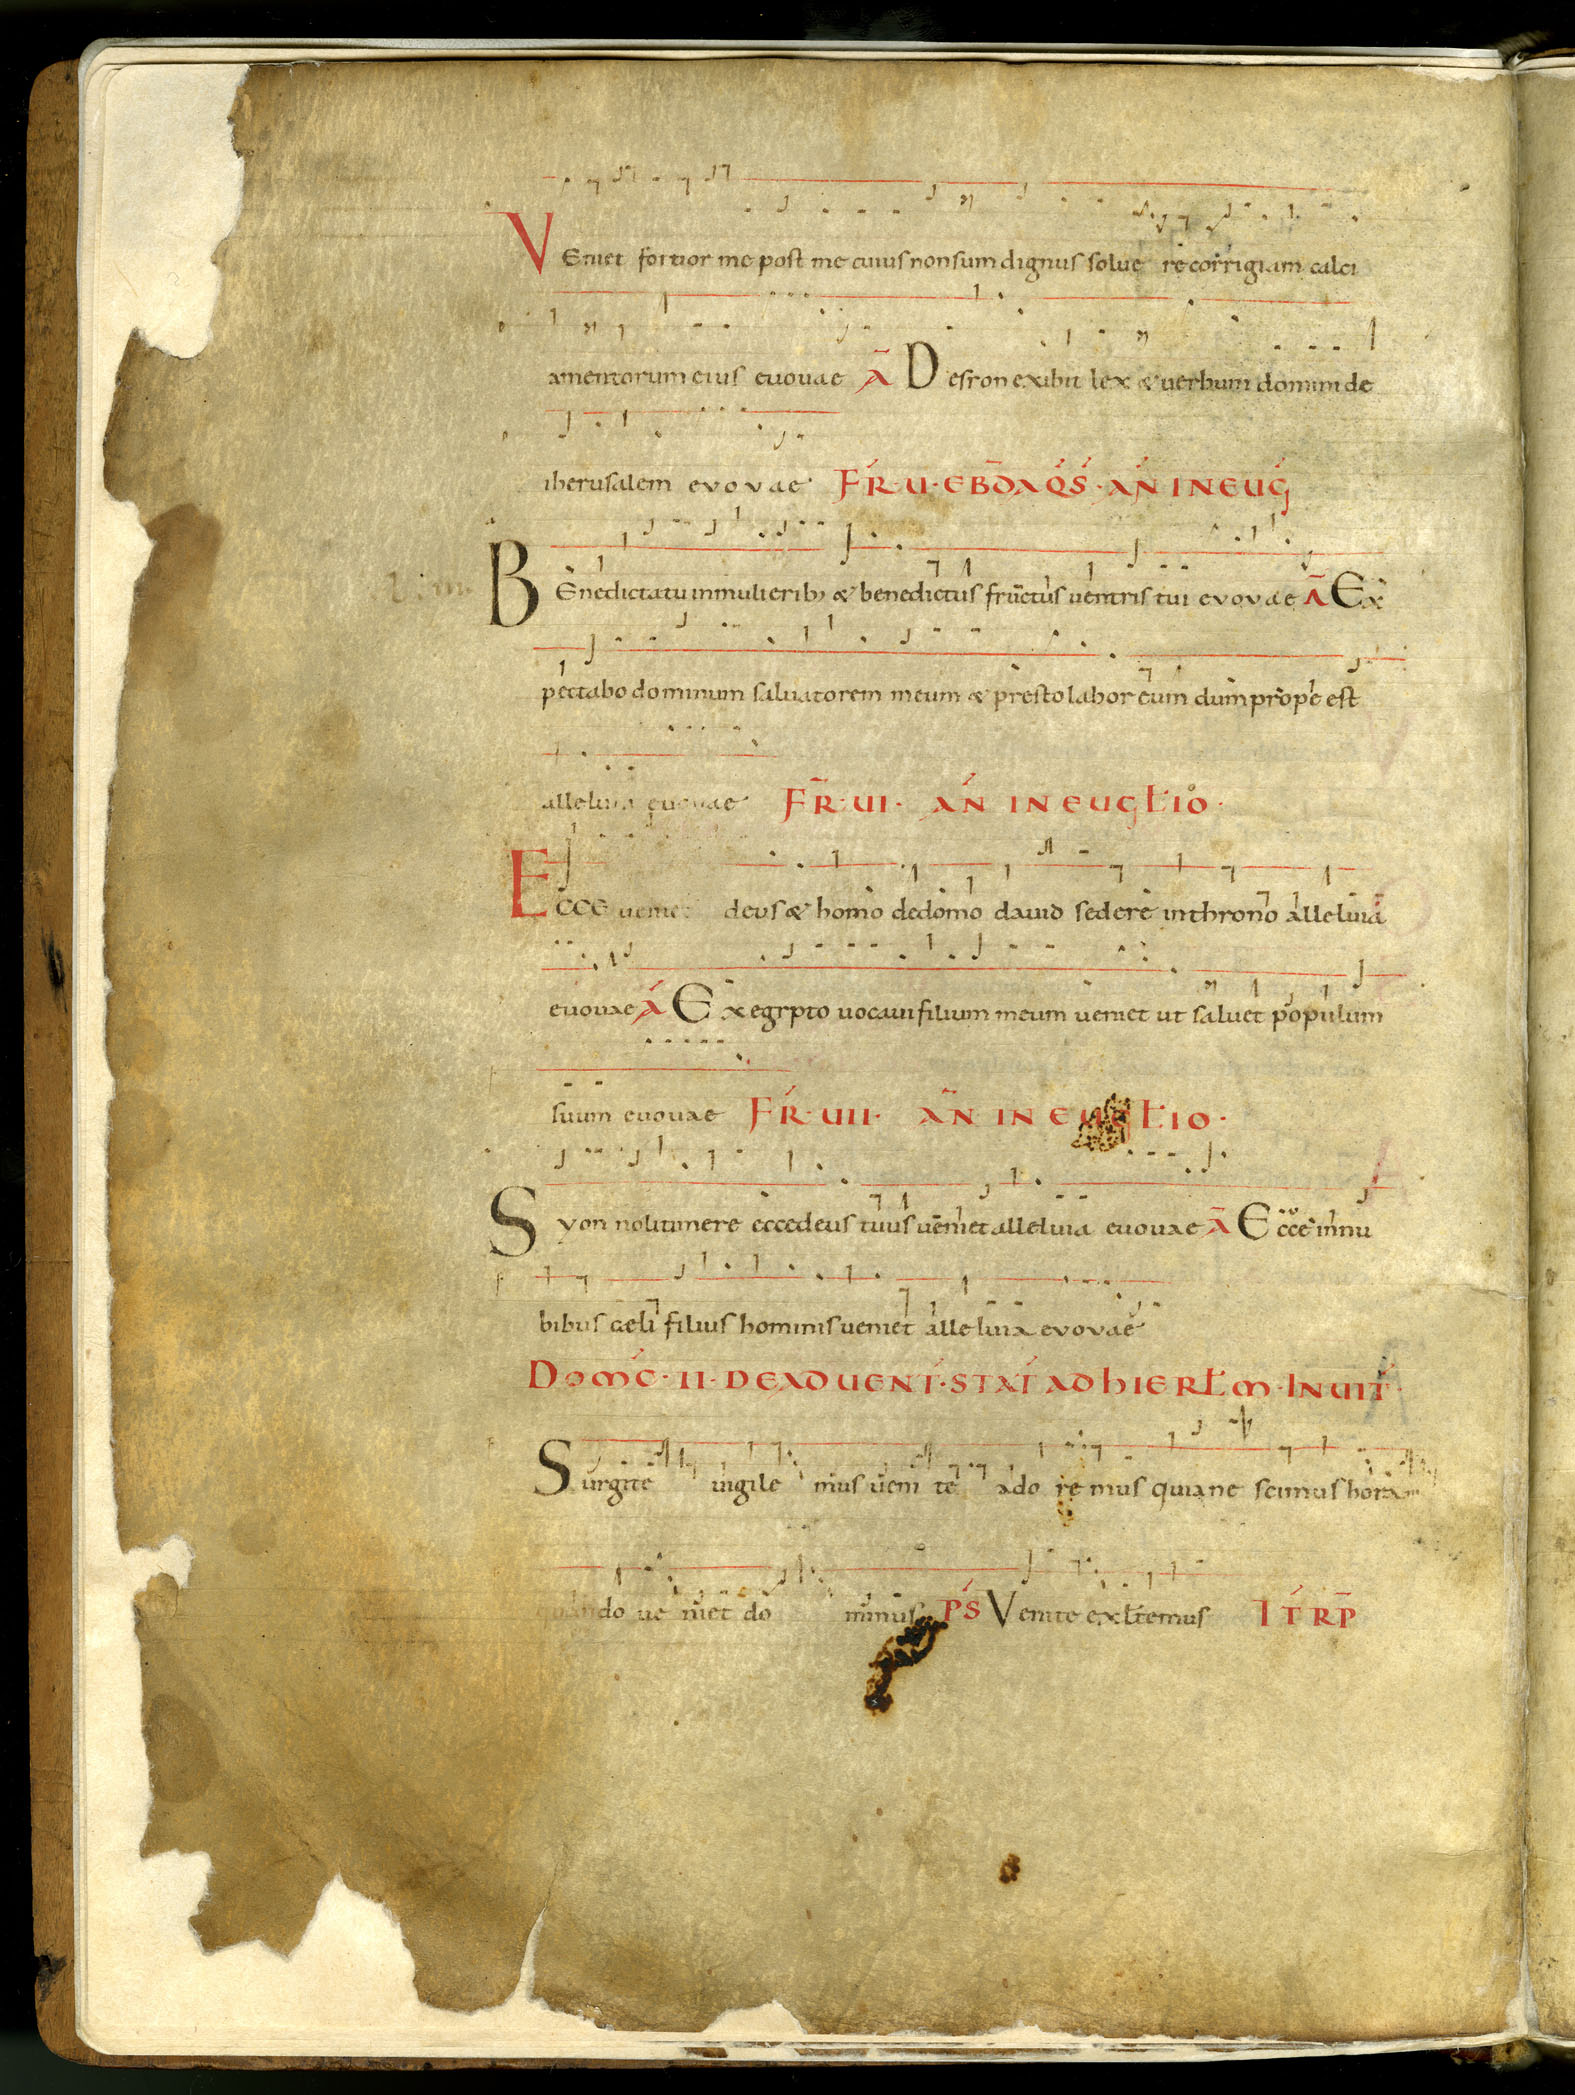 VEniet fortior me post me cuius non sum dignus soluere corrigiam calci
amentorum eius euouae Ā Desyon exibit lex & uerbum domini de
iherusalem evovae FR·U·EBDA QS·AN IN EUG
BEnedicta tu in mulierib; & benedictus fructus uentris tui evovae Ā Ex
pectabo dominum saluatorem meum & prestolabor eum dum prope est
alleluia euouae FR·UI· AN IN EUGŁIO·
Ecce ueniet deus & homo de domo dauid sedere in throno alleluia
euouae Ā Ex egypto uocaui filium meum ueniet ut saluet populum
suum euouae FR·UII· AN IN EUGŁIO·
Syon noli timere ecce deus tuus ueniet alleluia euouae Ā Ecce in nu
bibus caeli filius hominis ueniet alleluia evovae
DOMC·II·DE ADUENT·STAT AD HIERŁM·INUIT·
Surgite uigilemus uenite adoremus quia nescimus horam
quando ueniet dominus PS Venite exłtemus IT RP